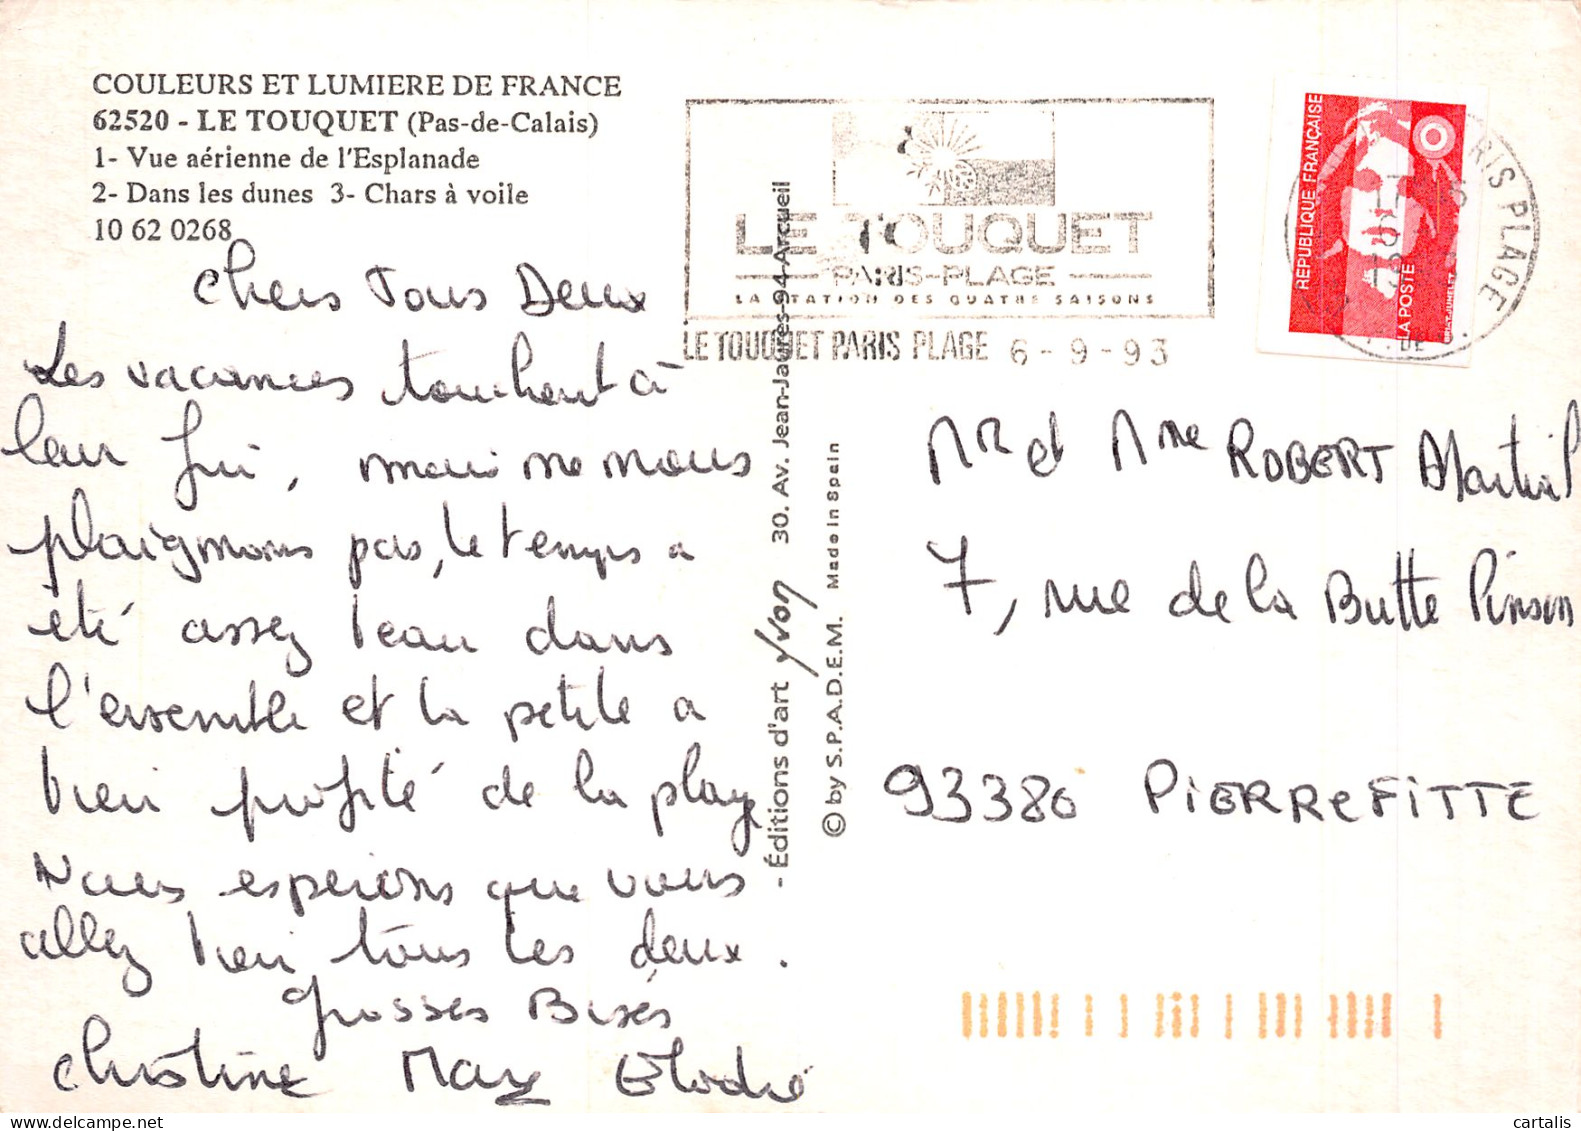 COULEURS ET LUMIERE DE FRANCE
62520 - LE TOUQUET (Pas-de-Calais)
1- Vue aérienne de l'Esplanade
2- Dans les dunes 3- Chars à voile
10 62 0268
Chers Tous Deux
Les vacances touchent à
leur fin, mais ne nous
plaignons pas, le temps a
été assez beau dans
l'ensemble et la petite a
bien profité de la plage
Nous espérons que vous
allez bien tous les deux.
Grosses Bises
Christine Max Elodie
-Éditions d'art yvon 30. Av. Jean-Jaurès-94-Arcueil
© by S.P.A.D.E.M. Made in Spain
LE TOUQUET
PARIS-PLAGE
LA STATION DES QUATRE SAISONS
LE TOUQUET PARIS PLAGE 6-9-93
RÉPUBLIQUE FRANÇAISE
LA POSTE
PARIS PLAGE
Mr et Mme ROBERT Martial
7, rue de la Butte Pinson
93380 PIERREFITTE
cartalis